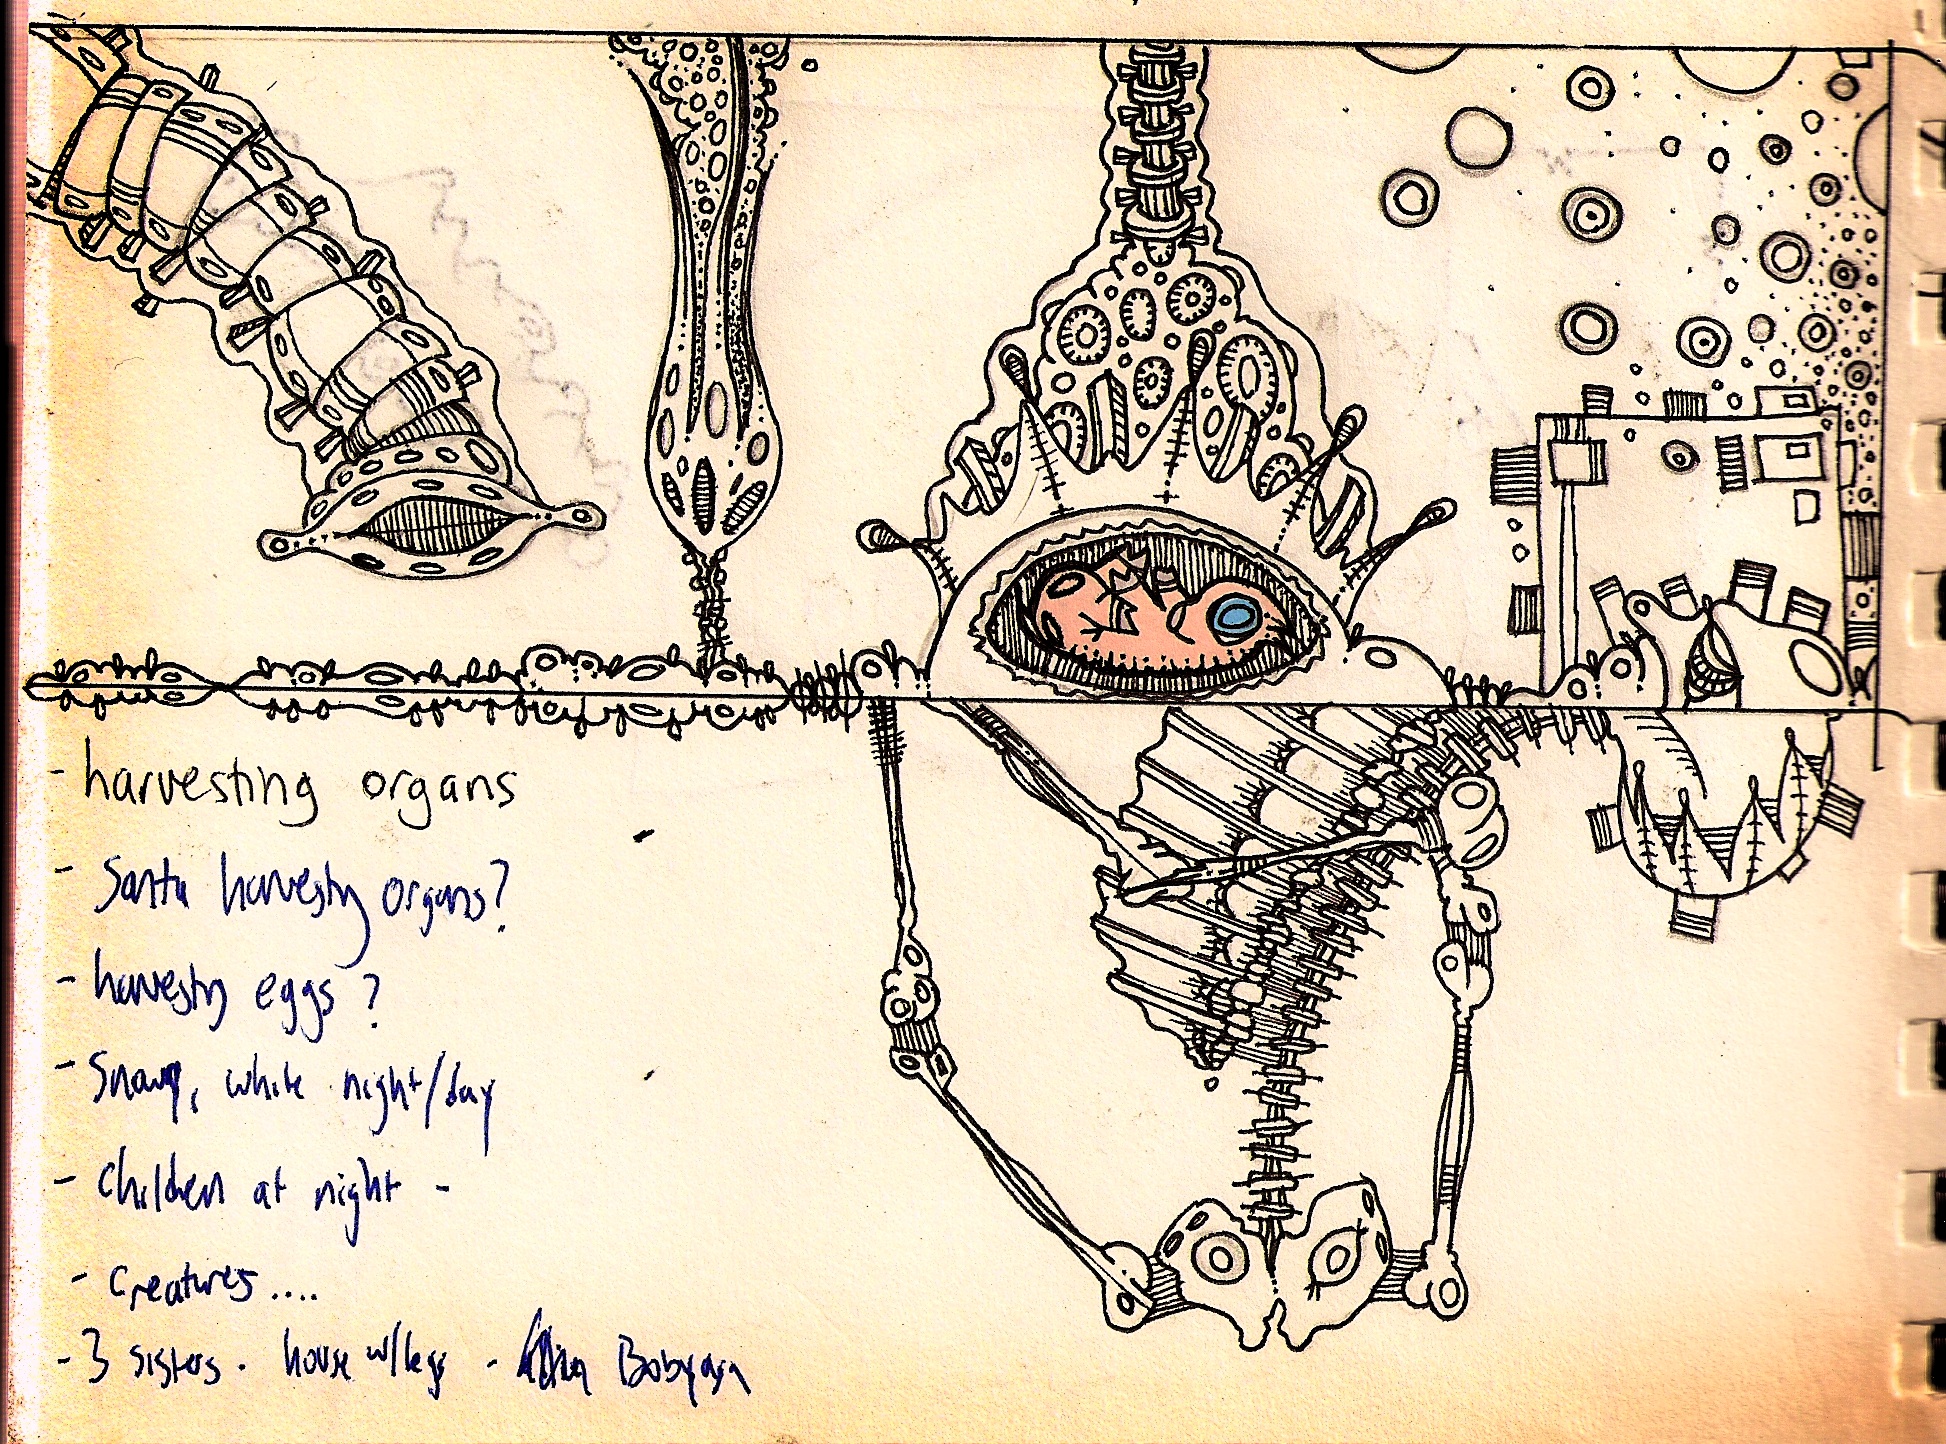 - harvesting organs
- Santa harvestg organs?
- harvestg eggs?
- Snowy, white night/day
- Children at night -
- Creatures....
- 3 sisters. house w/legs -